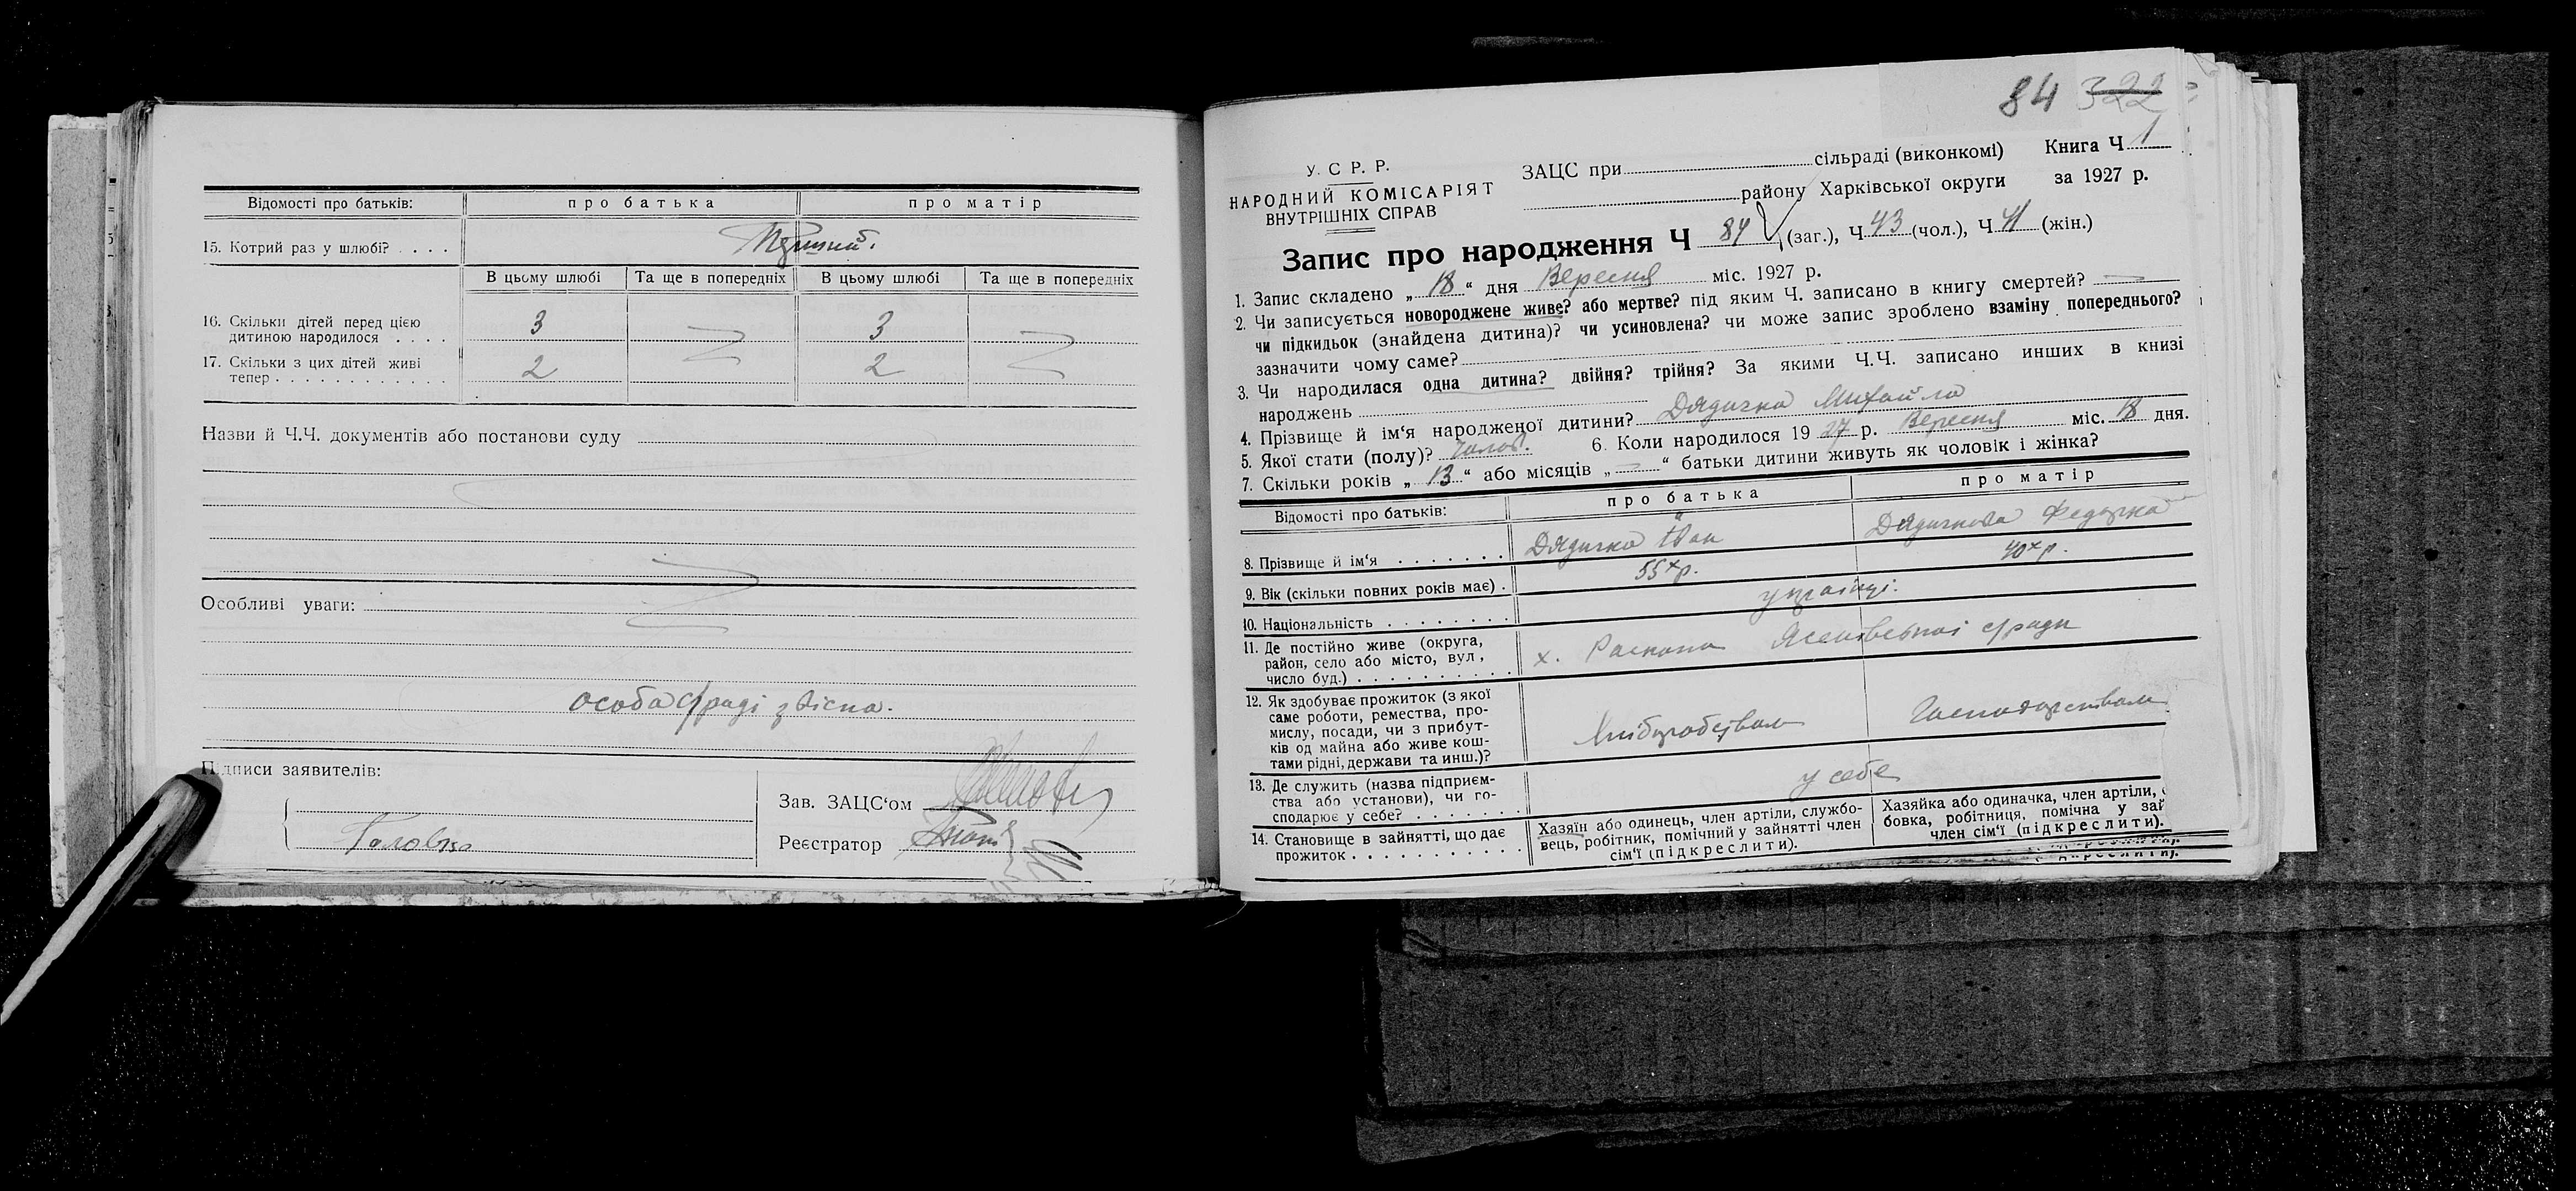 Відомості про батьків: про батька про матір
15. Котрий раз у шлюбі? . . . .
В цьому шлюбі Та ще в попередніх В цьому шлюбі Та ще в попередніх
16. Скільки дітей перед цією
дитиною народилося . . . . 3 3
17. Скільки з цих дітей живі
тепер . . . . . . . . . . . . 2 2
Назви й Ч.Ч. документів або постанови суду
Особливі уваги:
особа с/раді звісна.
Підписи заявителів:
Зав. ЗАЦС'ом
Реєстратор
84 322
У. С. Р. Р.
НАРОДНИЙ КОМІСАРІЯТ
ВНУТРІШНІХ СПРАВ
ЗАЦС при сільраді (виконкомі) Книга Ч 1
району Харківської округи за 1927 р.
Запис про народження Ч 84 (заг.), Ч 43 (чол.), Ч 41 (жін.)
1. Запис складено „ 18 “ дня Вересня міс. 1927 р.
2. Чи записується новороджене живе? або мертве? під яким Ч. записано в книгу смертей? —
чи підкидьок (знайдена дитина)? чи усиновлена? чи може запис зроблено взаміну попереднього?
зазначити чому саме?
3. Чи народилася одна дитина? двійня? трійня? За якими Ч.Ч. записано инших в книзі
народжень
4. Прізвище й ім‘я народженої дитини? Дядичко Михайло
5. Якої стати (полу)? чолов. 6. Коли народилося 19 27 р. Вересня міс. 18 дня.
7. Скільки років „ 13 “ або місяців „ — “ батьки дитини живуть як чоловік і жінка?
Відомості про батьків: про батька про матір
8. Прізвище й ім‘я . . . . . . Дядичко Іван Дядичкова Федорка
9. Вік (скільки повних років має) . 55 х р. 40 х р.
10. Національність . . . . . . . . українці.
11. Де постійно живе (округа,
район, село або місто, вул,
число буд.) . . . . . . . . . . х. с/ради
12. Як здобуває прожиток (з якої
саме роботи, ремества, про-
мислу, посади, чи з прибут-
ків од майна або живе кош-
тами рідні, держави та инш.)? Хліборобством Господарством
13. Де служить (назва підприєм-
ства або установи), чи го-
сподарює у себе? . . . . . . . у себе
14. Становище в зайнятті, що дає
прожиток . . . . . . . . . . .
Хазяїн або одинець, член артіли, службо-
вець, робітник, помічний у зайнятті член
сім‘ї (підкреслити).
Хазяйка або одиначка, член артіли,
бовка, робітниця, помічна у зай
член сім‘ї (підкреслити).